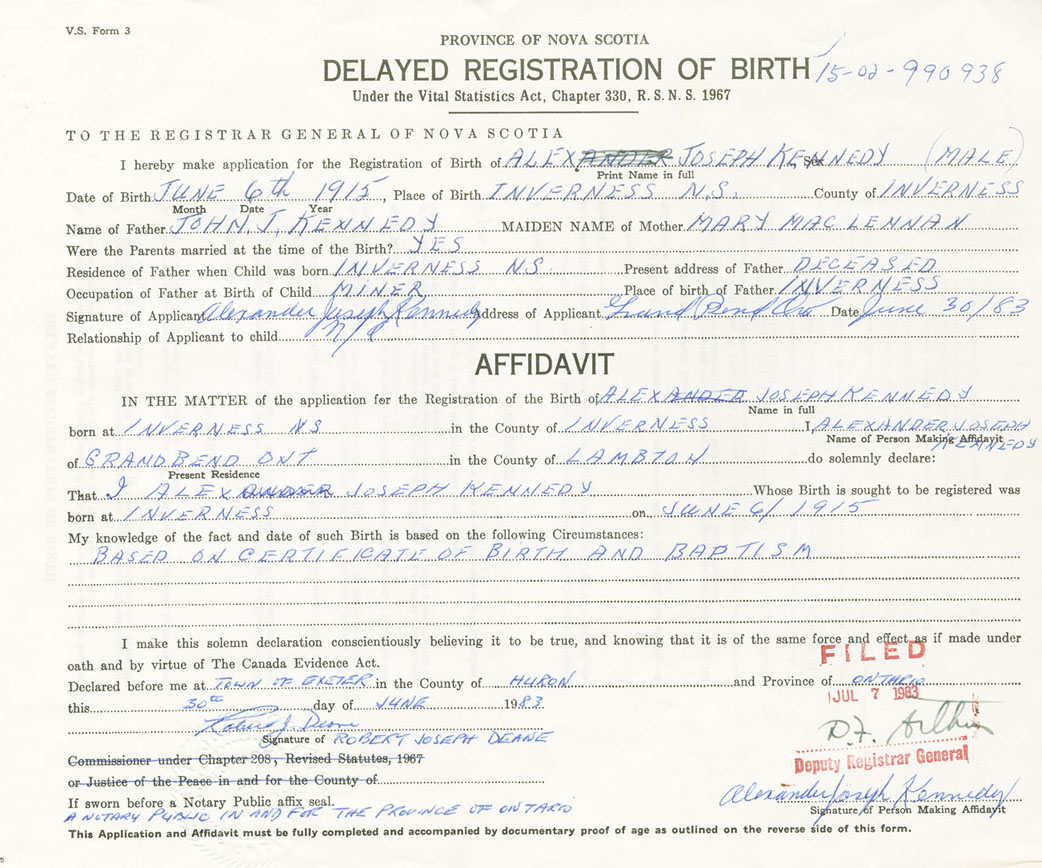 V.S. Form 3
PROVINCE OF NOVA SCOTIA
DELAYED REGISTRATION OF BIRTH 15-02-990938
Under the Vital Statistics Act, Chapter 330, R.S.N.S. 1967
TO THE REGISTRAR GENERAL OF NOVA SCOTIA
I hereby make application for the Registration of Birth of ALEXANDER JOSEPH KENNEDY, Sex (MALE)
Print Name in full
Date of Birth JUNE 6th 1915, Place of Birth INVERNESS N.S. County of INVERNESS
Month Date Year
Name of Father JOHN J. KENNEDY MAIDEN NAME of Mother MARY MAC LENNAN
Were the Parents married at the time of the Birth? YES
Residence of Father when Child was born INVERNESS NS Present address of Father DECEASED
Occupation of Father at Birth of Child MINER Place of birth of Father INVERNESS
Signature of Applicant Alexander Joseph Kennedy Address of Applicant Grand Bend Ont Date June 30/83
Relationship of Applicant to child
AFFIDAVIT
IN THE MATTER of the application for the Registration of the Birth of ALEXANDER JOSEPH KENNEDY
Name in full
born at INVERNESS NS in the County of INVERNESS I, ALEXANDER JOSEPH KENNEDY
Name of Person Making Affidavit
of GRAND BEND ONT in the County of LAMBTON do solemnly declare:
Present Residence
That I ALEXANDER JOSEPH KENNEDY Whose Birth is sought to be registered was
born at INVERNESS on JUNE 6/1915
My knowledge of the fact and date of such Birth is based on the following Circumstances:
BASED ON CERTIFICATE OF BIRTH AND BAPTISM
I make this solemn declaration conscientiously believing it to be true, and knowing that it is of the same force and effect as if made under
oath and by virtue of The Canada Evidence Act.
FILED
Declared before me at TOWN OF EXETER in the County of HURON and Province of ONTARIO
this 30th day of JUNE 1983
JUL 7 1983
Robert J. Deane
Signature of ROBERT JOSEPH DEANE
D.F.
Deputy Registrar General
Commissioner under Chapter 208, Revised Statutes, 1967
or Justice of the Peace in and for the County of
Alexander Joseph Kennedy
If sworn before a Notary Public affix seal.
Signature of Person Making Affidavit
A NOTARY PUBLIC IN AND FOR THE PROVINCE OF ONTARIO
This Application and Affidavit must be fully completed and accompanied by documentary proof of age as outlined on the reverse side of this form.
5